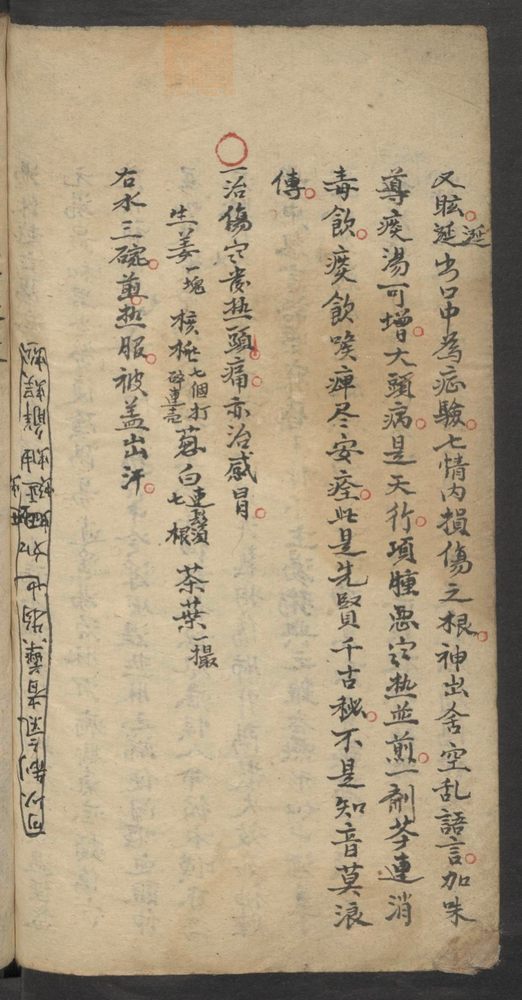 又眩涎出口中為症驗七情內損傷之根神出舍空乱語言加味
導痰湯可增大頭病是天行項腫惡寒热並煎一剂芩連消
毒飲痰飲喉痺尽安痊此是先賢千古秘不是知音莫浪
傳
一治傷寒發热頭痛亦治感冒
生姜一塊 核桃七個打碎連壳 葱白連鬚七根 茶葉一撮
右水三碗煎热服被盖出汗